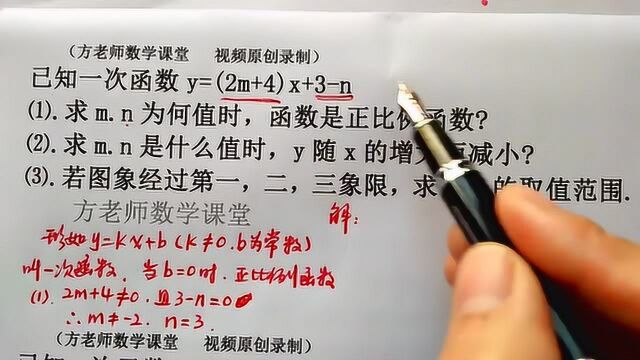 （方老师数学课堂 视频原创录制）
已知一次函数 y=(2m+4)x+3-n
⑴. 求 m.n 为何值时，函数是正比例函数?
⑵. 求 m.n 是什么值时，y 随 x 的增 减小?
⑶. 若图象经过第一，二，三象限，求 的取值范围.
方老师数学课堂
解：
形如 y=kx+b (k≠0.b为常数)
叫一次函数. 当 b=0时. 正比例函数
⑴. 2m+4≠0. 且3-n=0
∴ m≠-2. n=3.
（方老师数学课堂 视频原创录制）